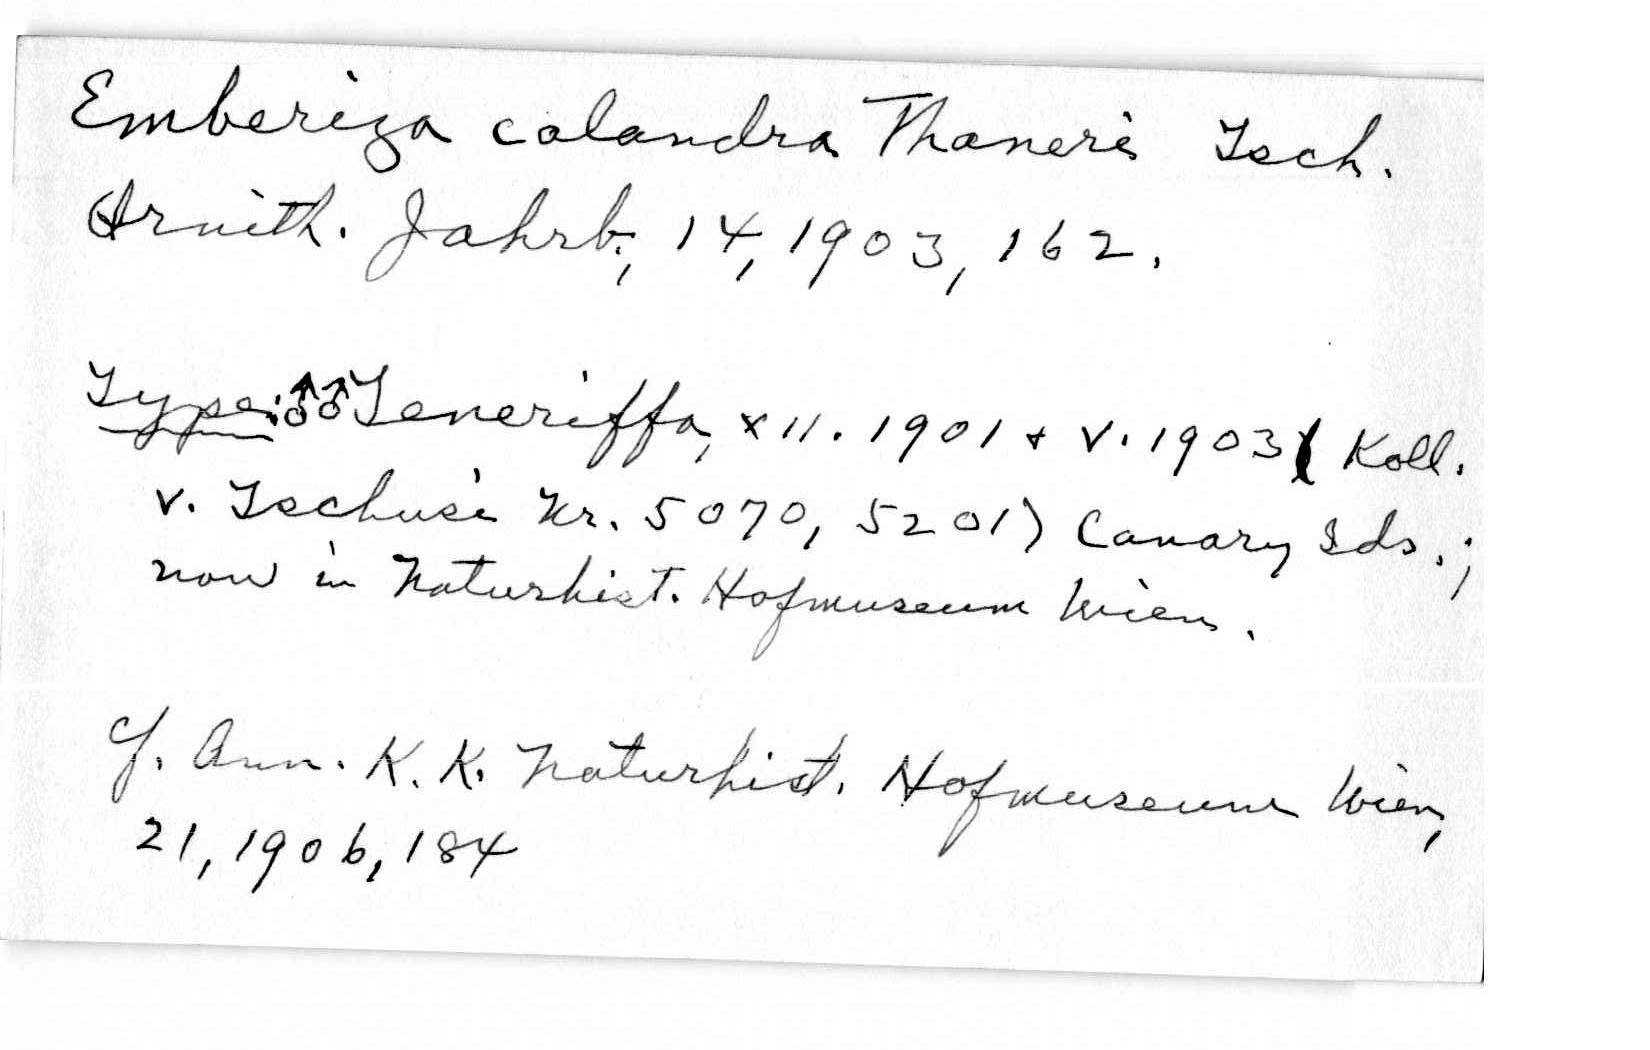 Emberiza calandra Thaneri Tsch.
Ornith. Jahrb., 14, 1903, 162.
Type: ♂♂ Teneriffa, XII. 1901 + V. 1903 ( Koll.
v. Tschusi Nr. 5070, 5201) Canary Ids.;
now in Naturhist. Hofmuseum Wien.
cf. Ann. K. K. Naturhist. Hofmuseum Wien,
21, 1906, 184